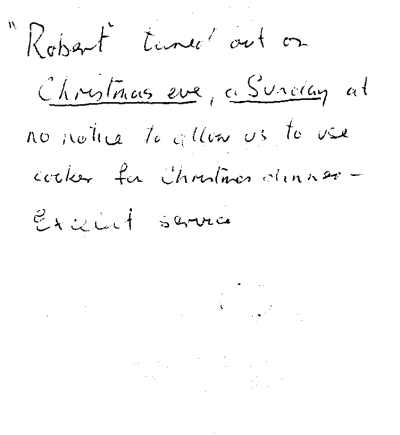 "Robert" turned out on
Christmas eve, a Sunday at
no notice to allow us to use
cooker for Christmas dinner -
Exclent service